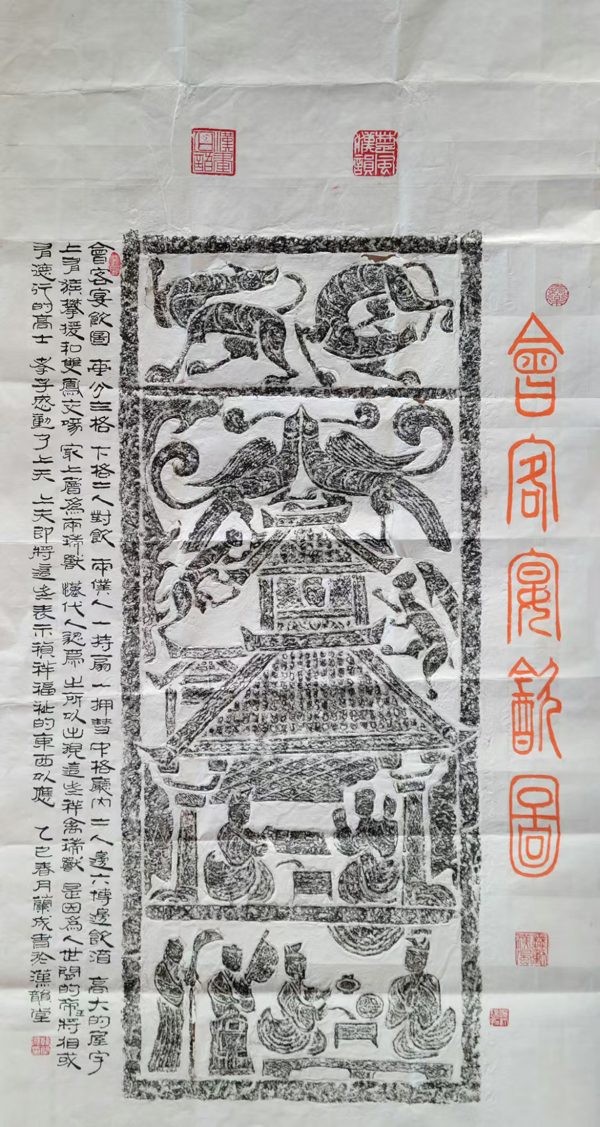 楚風漢韻
會客宴飲圖
會客宴飲圖 分三格 下格二人對飲 兩僕人一持扇一拥彗 中格廳内二人邊六博邊飲酒 高大的屋宇
上有猴攀援和雙鳳交喙 上層爲兩瑞獸 漢代人認爲 之所以出現這些祥禽瑞獸 是因爲人世間的帝王將相或
有德行的高士 孝子感動了上天 上天即將這些表示禎祥福祉的東西以應 乙巳春月蘭成書於漢韻堂